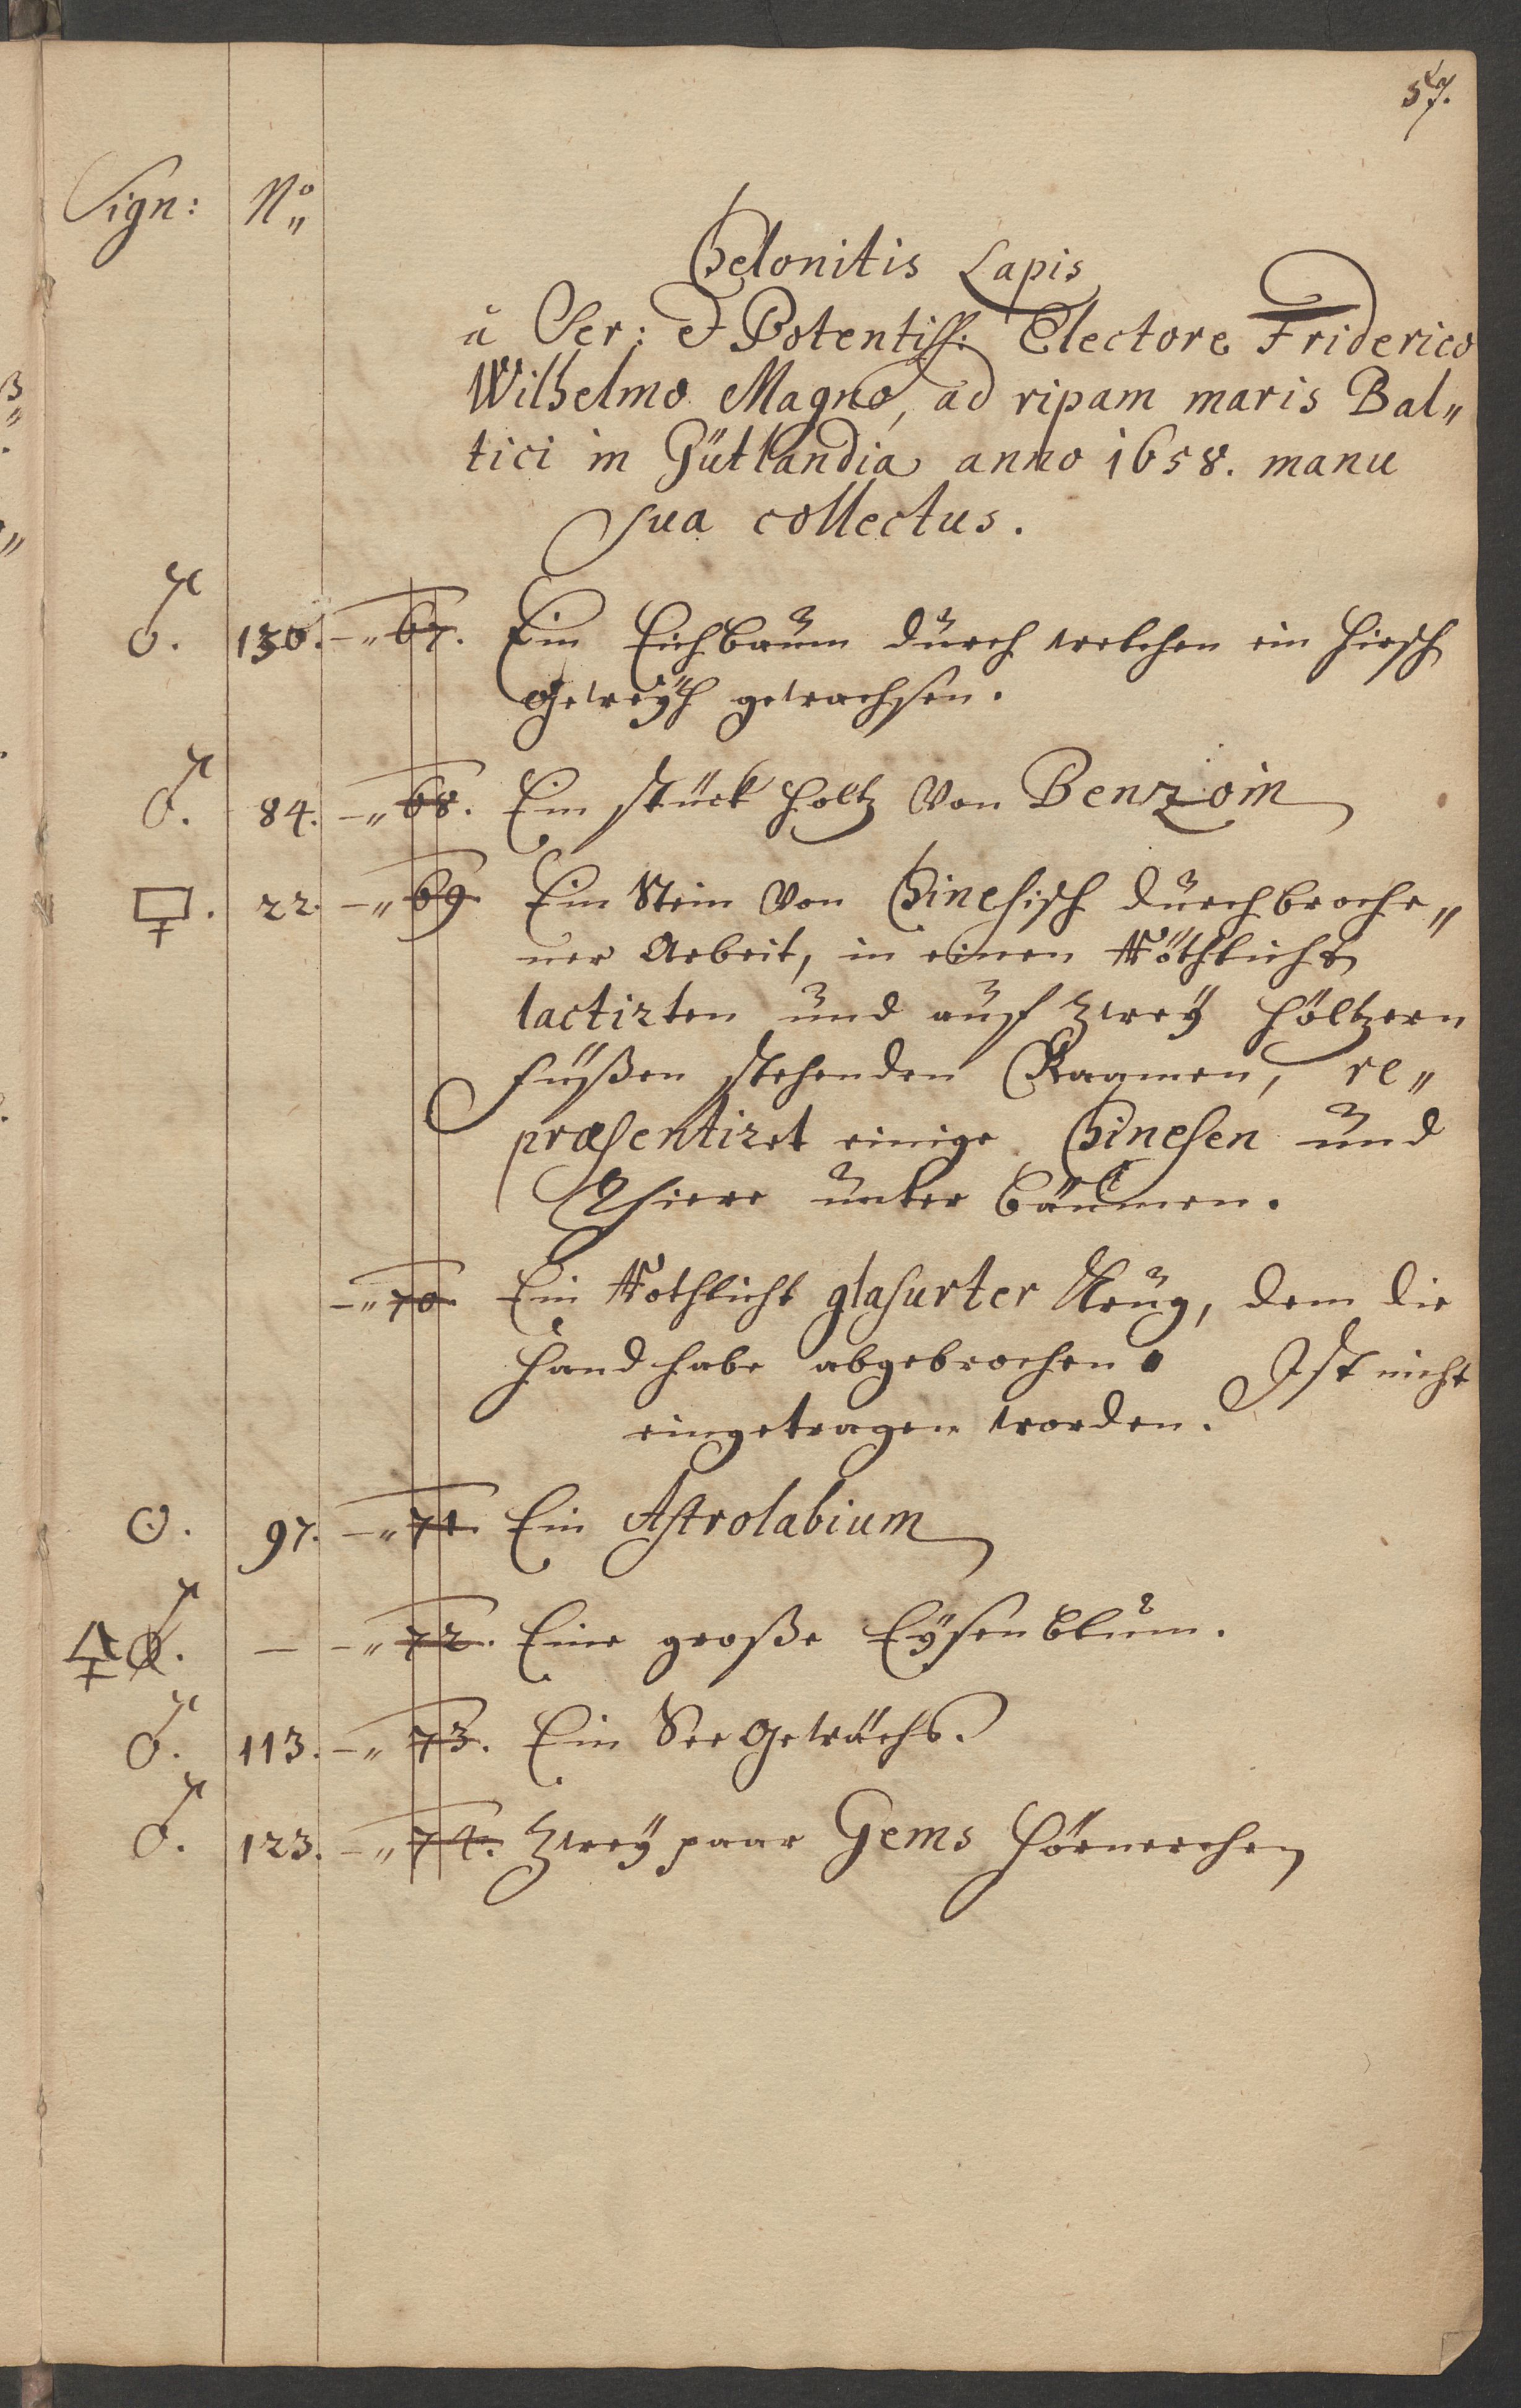 57.
Sign: No
Chelonitis Lapis
à Ser: et Potentiss: Electore Friderico
Wilhelmo Magno, ad ripam maris Bal„
tici in Gütlandia anno 1658. manu
sua collectus.
♂. 130. —„ 67. Ein Eichbaum durch welchen ein Hirsch
Geweÿh gewachsen.
♂. 84. —„ 68. Ein stück Holtz von Benzoin
22. —„ 69. Ein Stein von Chinesisch durchbroche„
ner Arbeit, in einen Röthlicht
lactirten und auf zweÿ höltzern
füßen stehenden Raamen, re„
præsentiret einige Chinesen und
Thiere unter bäumen.
—„ 70. Ein Rothlicht glasurter Krug, dem die
Handhabe abgebrochen. Ist nicht
eingetragen worden.
☉. 97. —„ 71. Ein Astrolabium
♂. — —„ 72. Eine große Eÿsenblum.
♂. 113. —„ 73. Ein See Gewächs.
♂. 123. —„ 74. Zweÿ paar Gems Hörnerchen